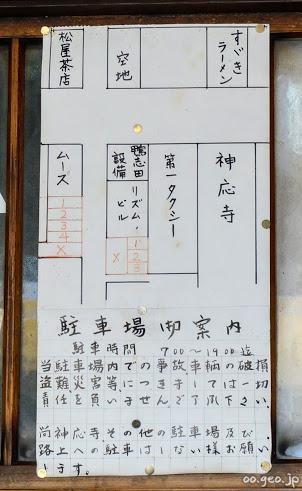 松屋茶店
空地
すゞきラーメン
ムーズ
1
2
3
4
X
鴨志田設備
リズム・ビル
X
1
2
3
第一タクシー
神応寺
駐車場御案内
駐車時間 7:00〜19:00迄
当駐車場内での事故車輌の破損
盗難災害等につきましては一切
責任を負いませんので
尚神応寺その他の駐車場及び
路上への駐車 お願い
します。
oo.geo.jp